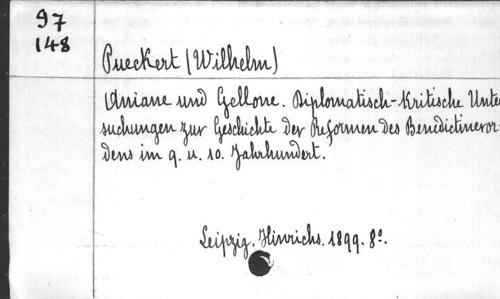 97
148
Pueckert (Wilhelm)
Aniane und Gellone. Diplomatisch-kritische Unte
suchungen zur Geschichte der Reformen des Benedictineror-
dens im 9. u. 10. Jahrhundert.
Leipzig. Hinrichs. 1899. 8º.